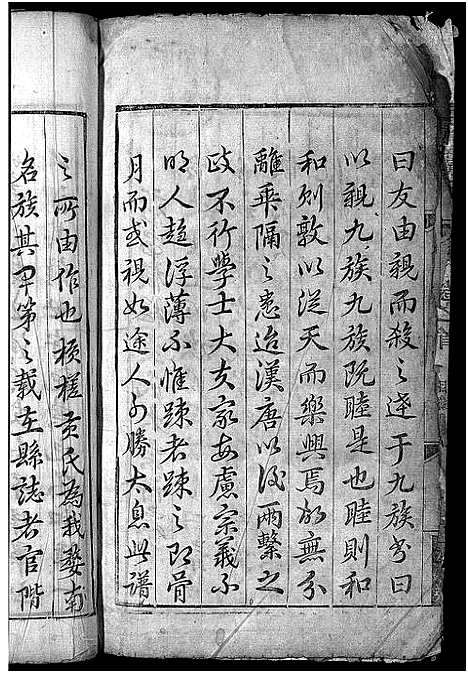 曰友由親而殺之達于九族書曰
以親九族九族既睦是也睦則和
和則敦以従天而樂興焉故無分
離乖隔之患迨漢唐以後兩繫之
政不行學士大夫家每慮宗義不
明人趨浮薄不惟踈者踈之即骨
月而或視如途人可勝太息此譜
之所由作也横槎黄氏為我婺南
名族其甲第之載在縣誌者官階